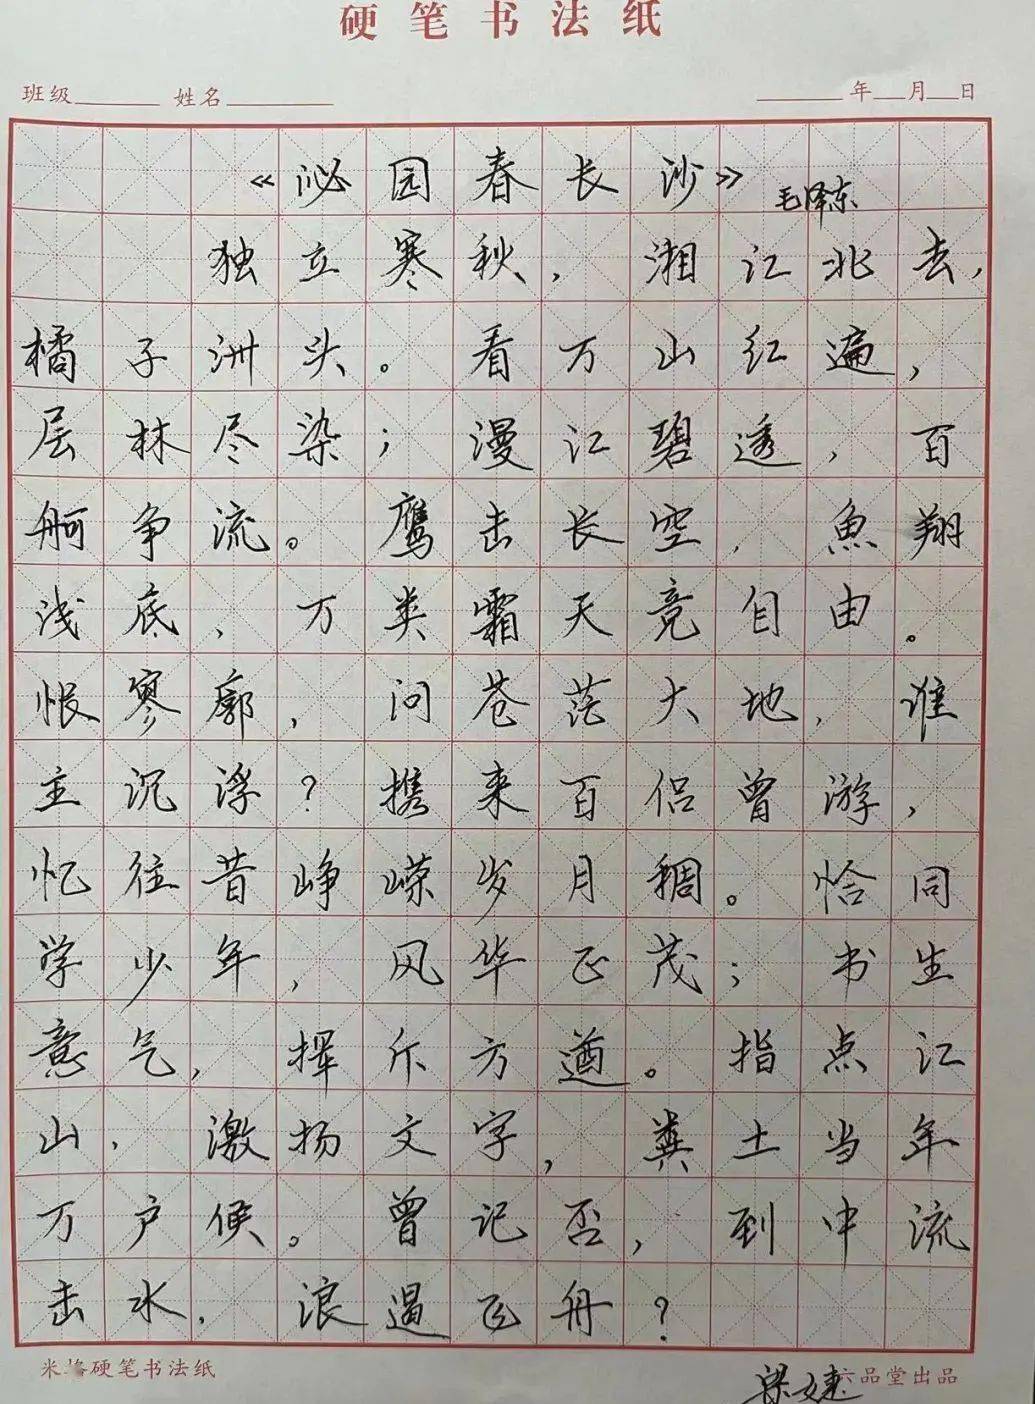 硬笔书法纸
班级 姓名 年 月 日
《沁园春长沙》 毛泽东
独立寒秋，湘江北去，
橘子洲头。看万山红遍，
层林尽染；漫江碧透，百
舸争流。鹰击长空，魚翔
浅底，万类霜天竞自由。
怅寥廓，问苍茫大地，谁
主沉浮？携来百侣曾游，
忆往昔峥嵘岁月稠。恰同
学少年，风华正茂；书生
意气，挥斥方遒。指点江
山，激扬文字，粪土当年
万户侯。曾记否，到中流
击水，浪遏飞舟？
米格硬笔书法纸 六品堂出品